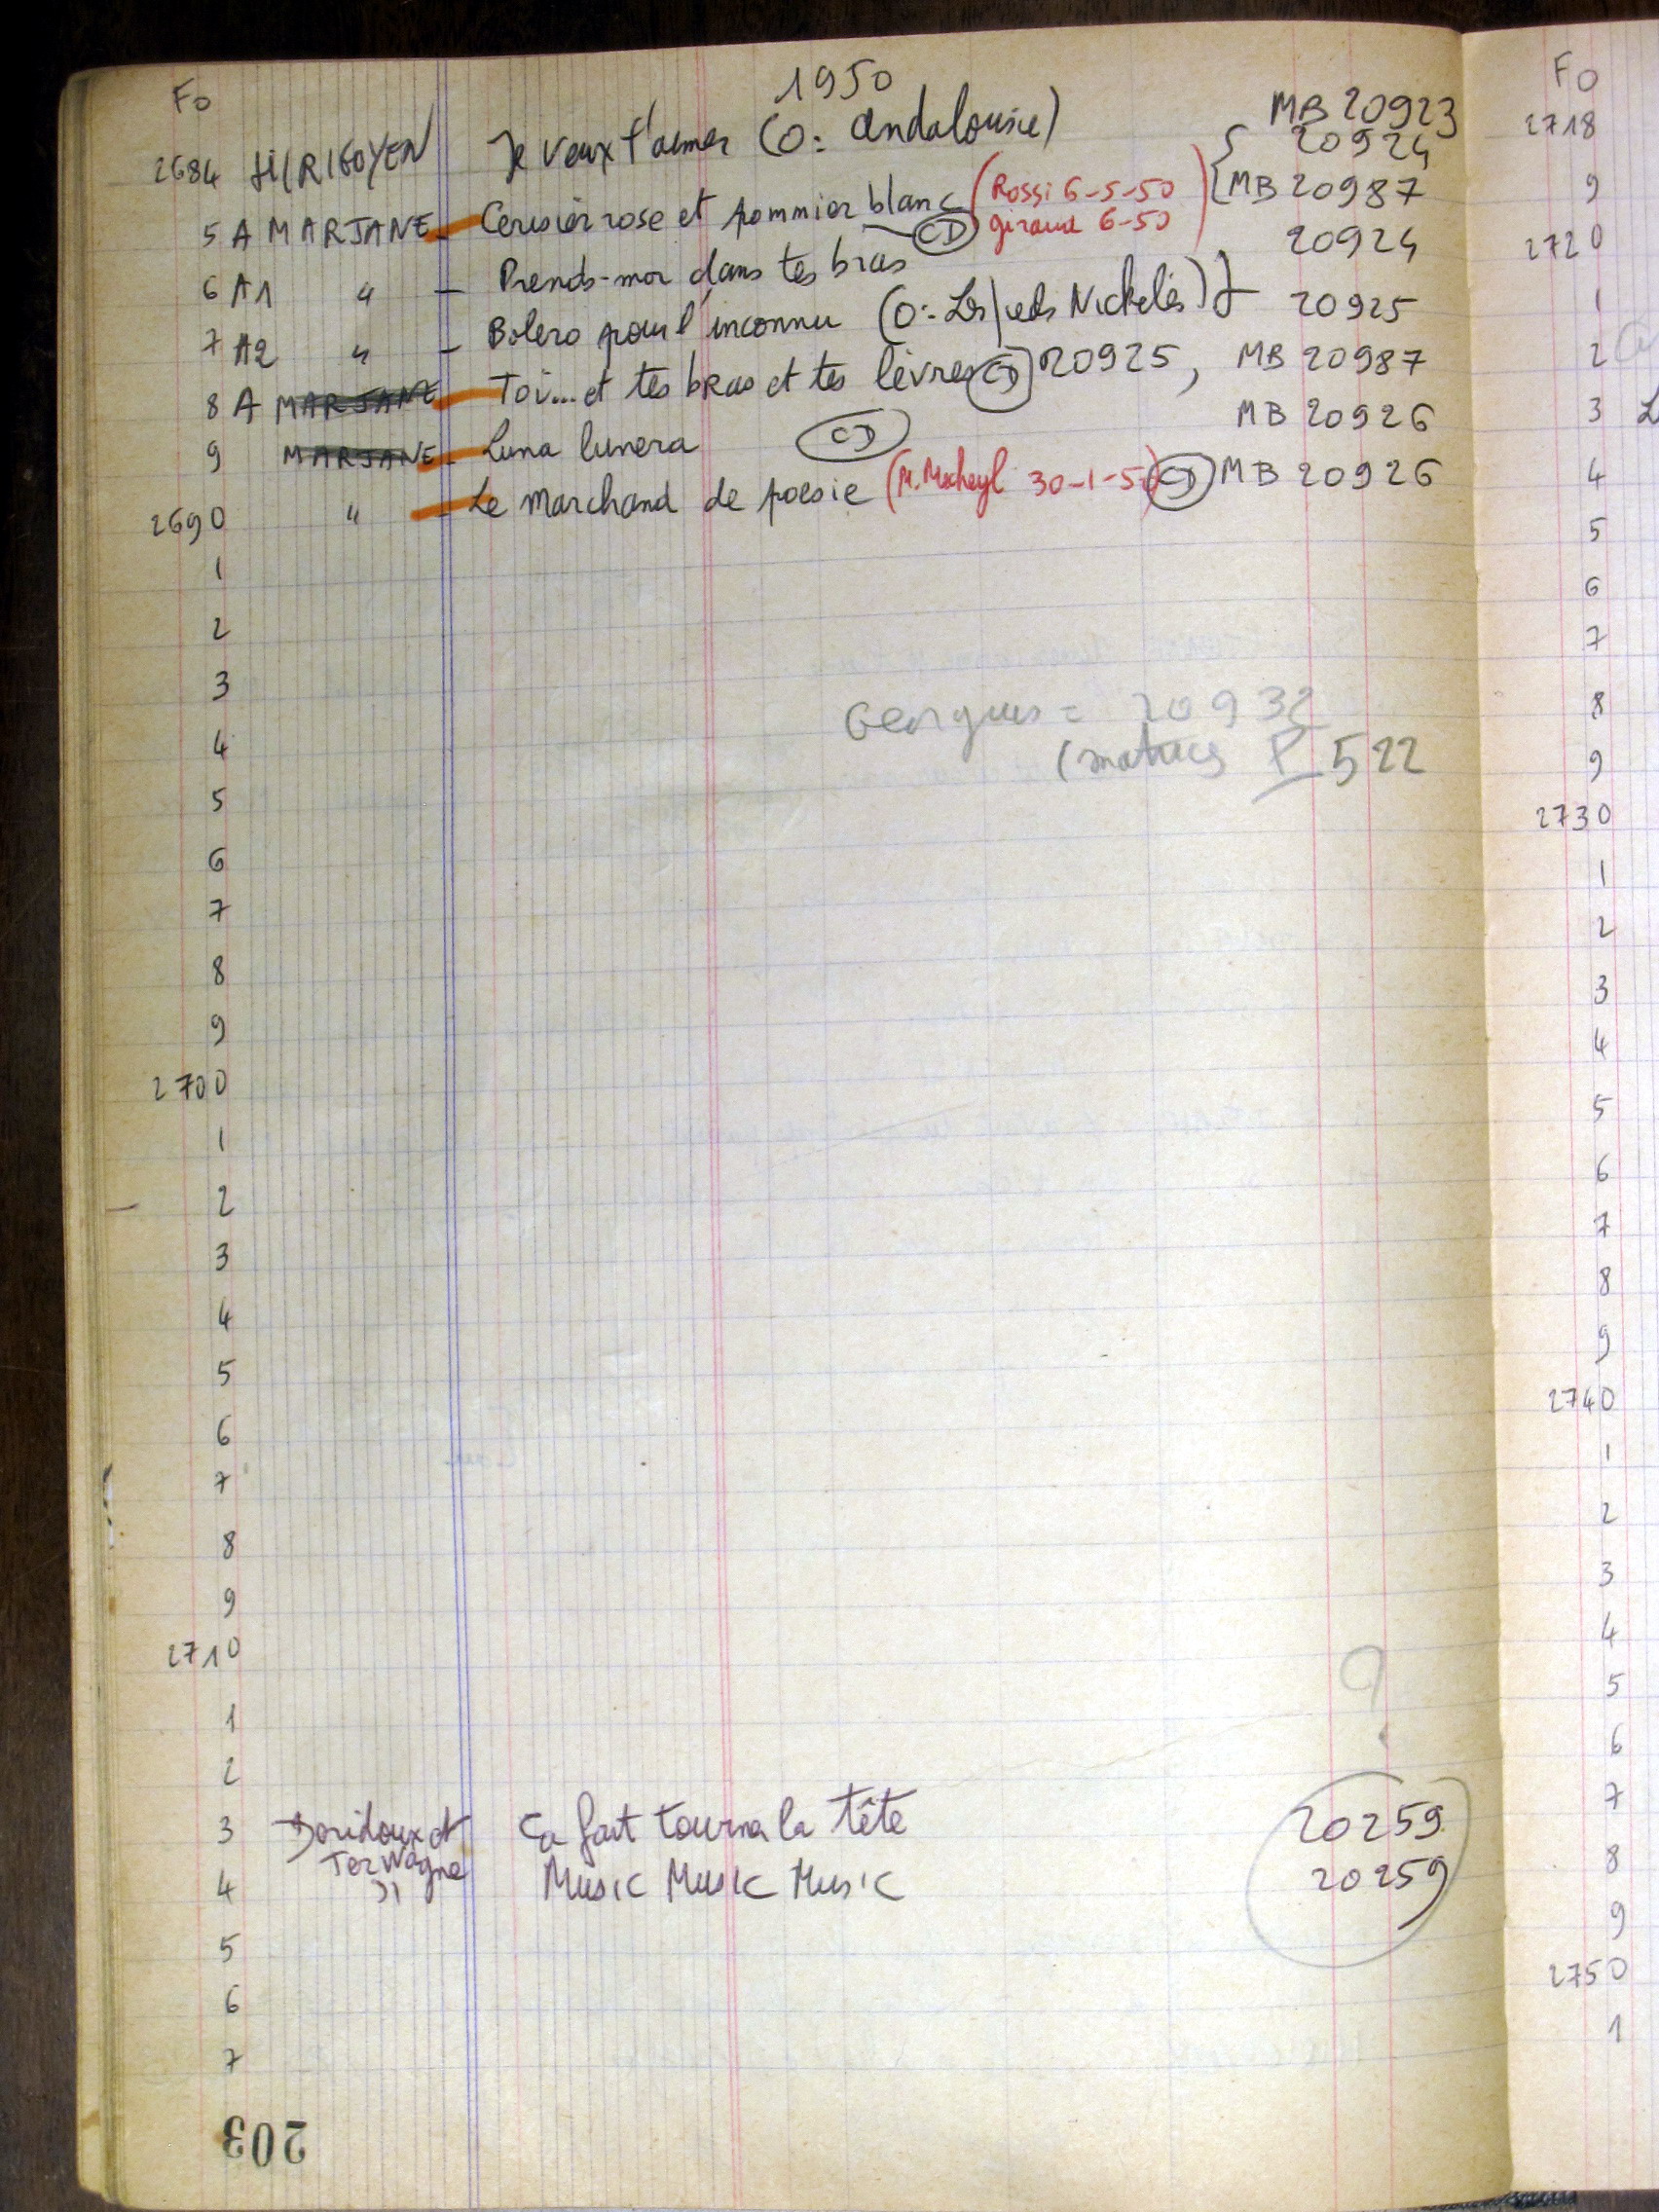 1950
Fo
2684 HIRIGOYEN Je veux t'aimer (O: Andalousie) MB 20923
5 A MARJANE - Cerisier rose et pommier blanc CD (Rossi 6-5-50 giraud 6-50) { 20924 MB 20987
6 A1 " - Prends-moi dans tes bras 20924
7 A2 " - Bolero pour l'inconnu (O: Les Pieds Nickelés) } 20925
8 A MARJANE - Toi... et tes bras et tes lèvres CD 20925, MB 20987
9 MARJANE - Luna lunera CD MB 20926
2690 " - Le Marchand de poesie (M. Micheyl 30-1-50) CD MB 20926
1
2
3
Georgius = 20932
4 (matrices P 522
5
6
7
8
9
2700
1
2
3
4
5
6
7
8
9
2710
1
?
2
3 Doridoux et Ca fait tourner la tête 20259
Terwagne
4 " Music Music Music 20259
5
6
7
203
Fo
2718
9
2720
1
2
3 L
4
5
6
7
8
9
2730
1
2
3
4
5
6
7
8
9
2740
1
2
3
4
5
6
7
8
9
2750
1